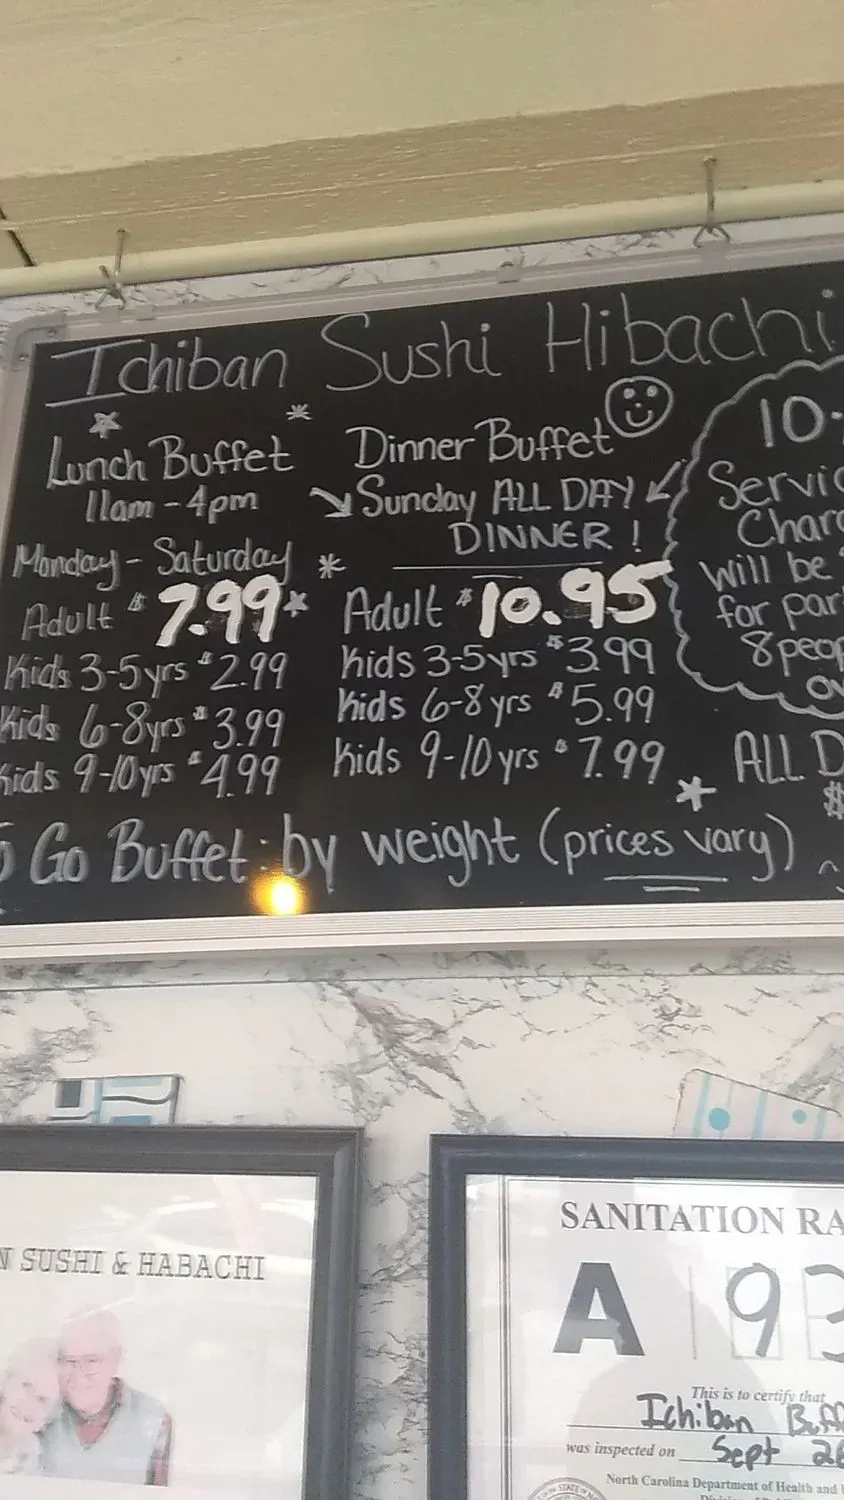 Ichiban Sushi Hibachi
Lunch Buffet
11am - 4pm
Monday - Saturday
Adult $7.99
Kids 3-5yrs $2.99
Kids 6-8yrs $3.99
Kids 9-10yrs $4.99
Dinner Buffet
Sunday ALL DAY
DINNER!
Adult $10.95
Kids 3-5yrs $3.99
Kids 6-8yrs $5.99
Kids 9-10yrs $7.99
10
Servic
Char
Will be
for par
8 peop
ov
ALL D
$
Go Buffet: by weight (prices vary)
N SUSHI & HABACHI
SANITATION RA
A 93
This is to certify that
Ichiban Buff
was inspected on Sept 26
North Carolina Department of Health and